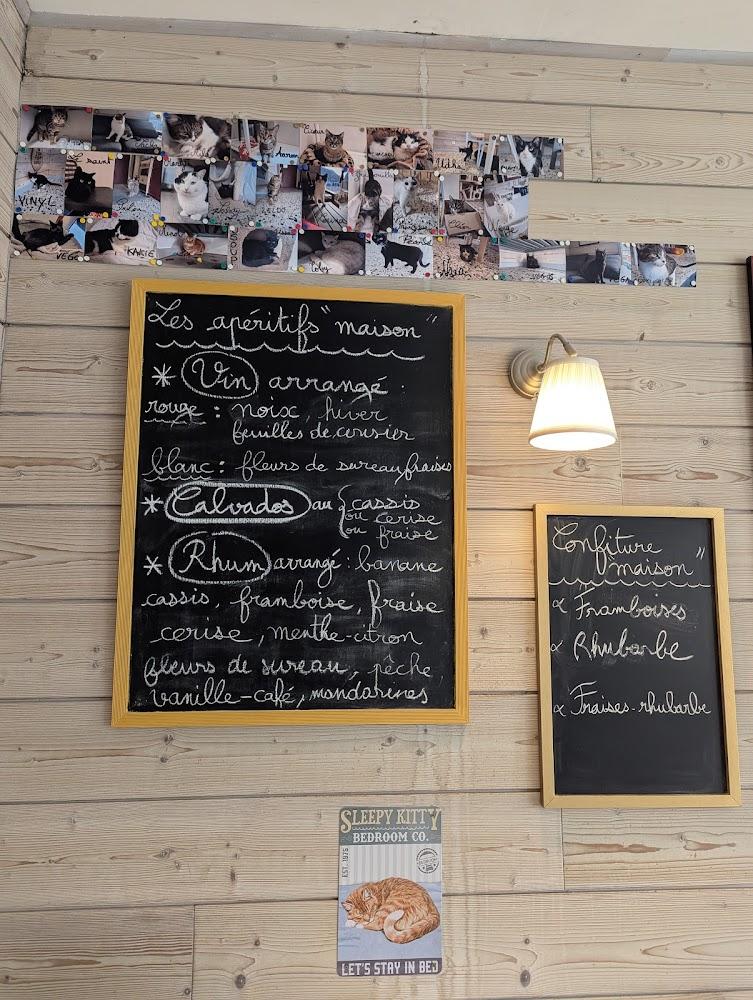 VINYL
Saint
VEGA
KASIE
Coby
Pearl
SCOOP
Les apéritifs "maison"
* Vin arrangé :
rouge : noix, hiver
feuilles de cerisier
blanc : fleurs de sureau fraises
* Calvados au { cassis
ou cerise
ou fraise
* Rhum arrangé : banane
cassis, framboise, fraise
cerise, menthe-citron
fleurs de sureau, pêche,
vanille-café, mandarines
Confiture
maison"
Framboises
Rhubarbe
Fraises-rhubarbe
SLEEPY KITTY
BEDROOM CO.
EST. 1975
LET'S STAY IN BED